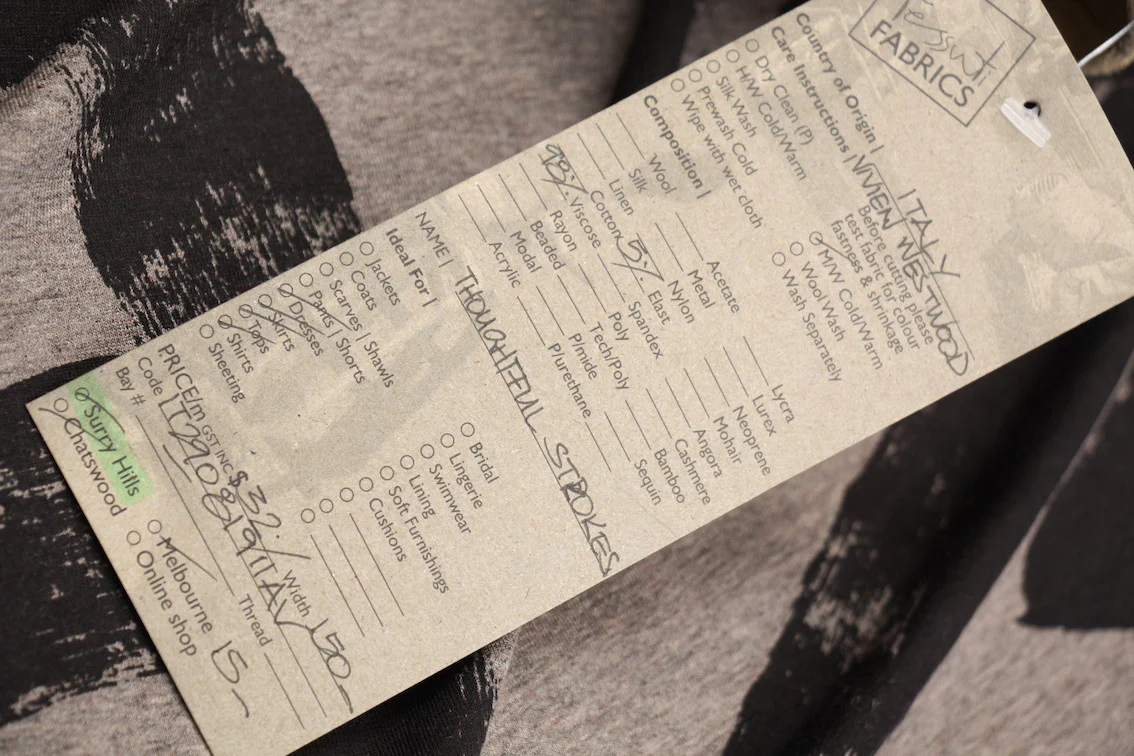 Tessuti
FABRICS
Country of Origin | ITALY
VIVIEN WESTWOOD
Care Instructions |
Before cutting please
test fabric for colour
fastness & shrinkage
Dry Clean (P)
H/W Cold/Warm
Silk Wash
Prewash Cold
Wipe with wet cloth
M/W Cold/Warm
Wool Wash
Wash Separately
Composition |
Wool
Silk
Linen
Cotton
98% Viscose
Rayon
Beaded
Modal
Acrylic
Acetate
Metal
Nylon
5% Elast
Spandex
Poly
Tech/Poly
P/mide
P/urethane
Lycra
Lurex
Neoprene
Mohair
Angora
Cashmere
Bamboo
Sequin
NAME | THOUGHTFUL STROKES
Ideal For |
Jackets
Coats
Scarves | Shawls
Pants | Shorts
Dresses
Skirts
Tops
Shirts
Sheeting
Bridal
Lingerie
Swimwear
Lining
Soft Furnishings
Cushions
PRICE/m GST INC $32./ Width 150
Code
Bay #
Thread
Surry Hills
Chatswood
Melbourne 15
Online shop